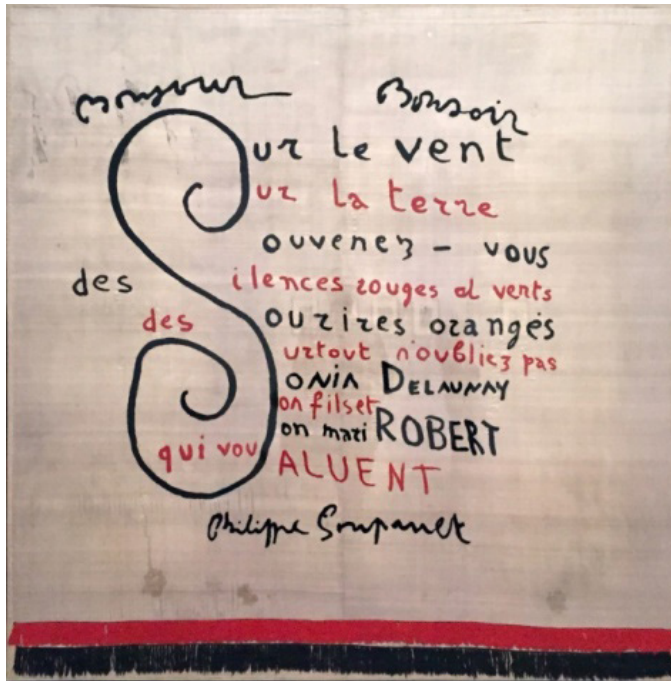 Bonjour Bonsoir
Sur le vent
ur la terre
ouvenez - vous
des ilences rouges et verts
des ourires orangés
urtout n'oubliez pas
onia DELAUNAY
on fils et
on mari ROBERT
qui vou ALUENT
Philippe Soupault